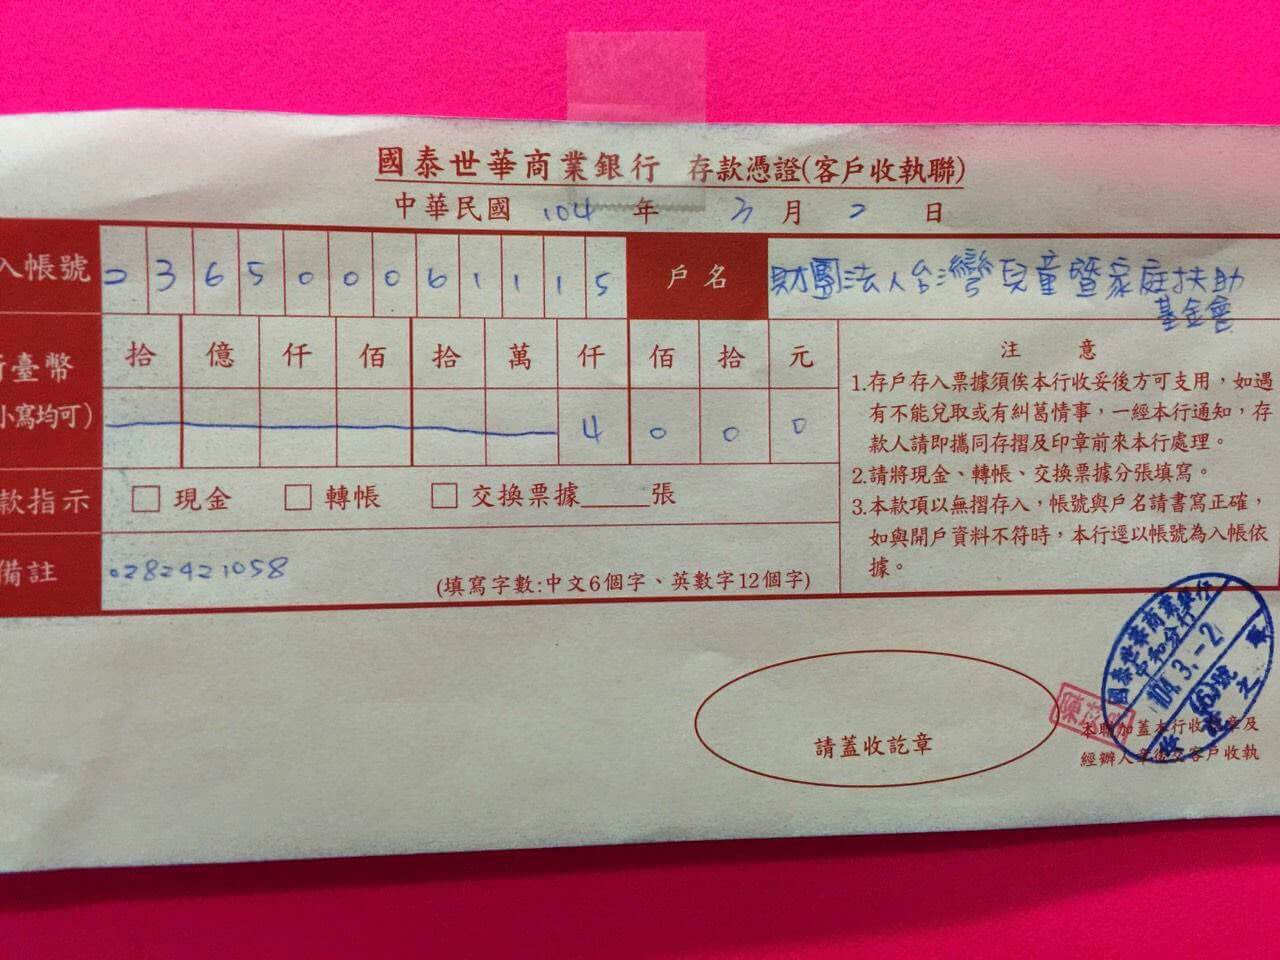 國泰世華商業銀行 存款憑證(客戶收執聯)
中華民國 104 年 3 月 2 日
入帳號 036500061115 戶名 財團法人台灣兒童暨家庭扶助
基金會
臺幣 拾 億 仟 佰 拾 萬 仟 佰 拾 元
小寫均可) 4 0 0 0
款指示 □ 現金 □ 轉帳 □ 交換票據____張
備註 0282421058 (填寫字數:中文6個字、英數字12個字)
注意
1.存戶存入票據須俟本行收妥後方可支用,如遇
有不能兌取或有糾葛情事,一經本行通知,存
款人請即攜同存摺及印章前來本行處理。
2.請將現金、轉帳、交換票據分張填寫。
3.本款項以無摺存入,帳號與戶名請書寫正確,
如與開戶資料不符時,本行逕以帳號為入帳依
據。
請蓋收訖章
國泰世華商業銀行
中和分行
104.3.-2
本聯加蓋本行收訖章及
經辦人章後交客戶收執